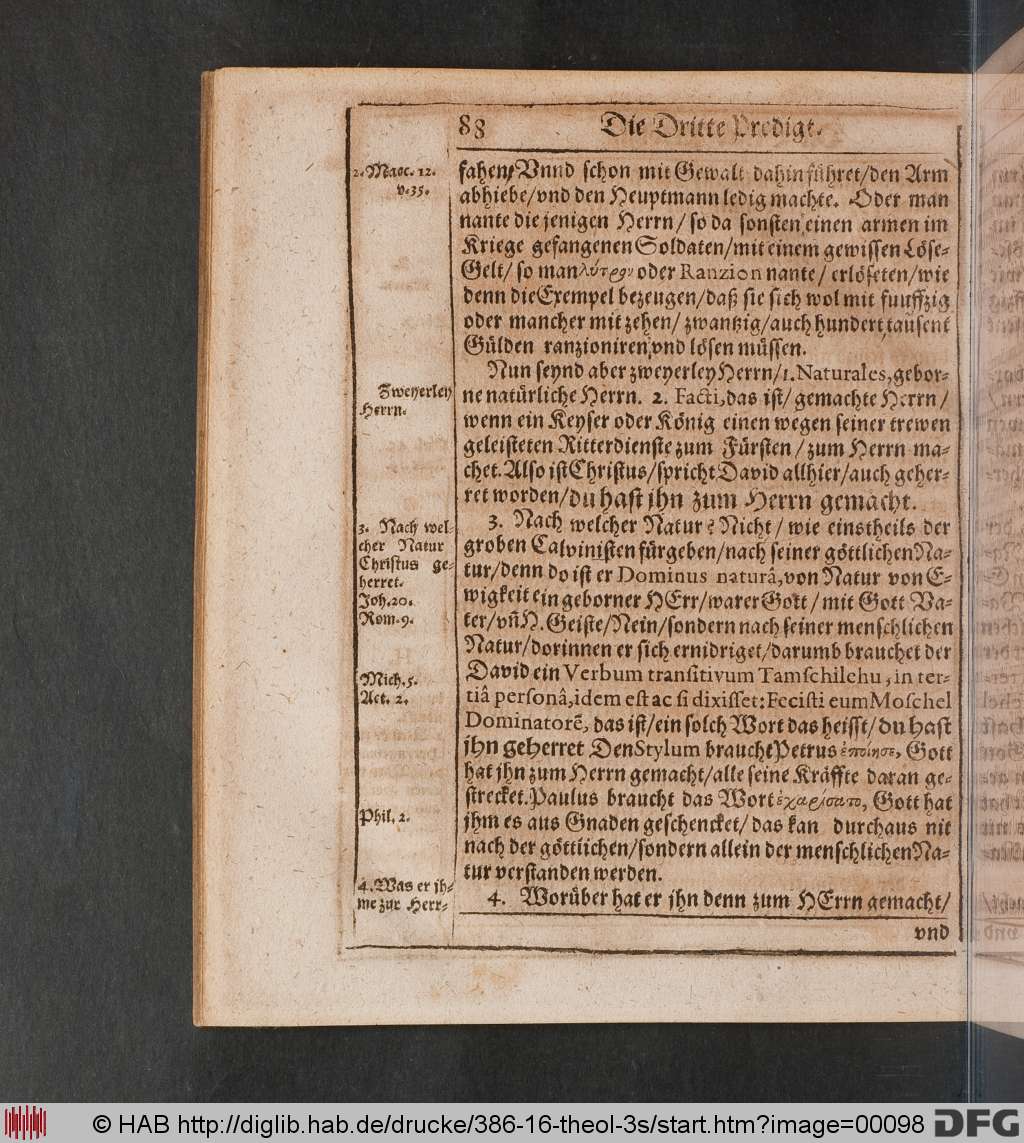 88 Die Dritte Predigt.
2. Macc. 12.
v. 35.
fahen/ Vnnd schon mit Gewalt dahin führet/ den Arm
abhiebe/ vnd den Heuptmann ledig machte. Oder man
nante die jenigen Herrn/ so da sonsten einen armen im
Kriege gefangenen Soldaten/ mit einem gewissen Löse-
Gelt/ so man λύτρον oder Ranzion nante/ erlöseten/ wie
denn die Exempel bezeugen/ daß sie sich wol mit funffzig
oder mancher mit zehen/ zwantzig/ auch hundert tausent
Gülden ranzioniren vnd lösen müssen.
Zweyerley
Herrn.
Nun seynd aber zweyerley Herrn/ 1. Naturales, gebor-
ne natürliche Herrn. 2. Facti, das ist/ gemachte Herrn/
wenn ein Keyser oder König einen wegen seiner trewen
geleisteten Ritterdienste zum Fürsten/ zum Herrn ma-
chet. Also ist Christus/ spricht David allhier/ auch geher-
ret worden/ du hast jhn zum Herrn gemacht.
3. Nach wel-
cher Natur
Christus ge-
herret.
Joh. 20.
Rom. 9.
3. Nach welcher Natur? Nicht/ wie einstheils der
groben Calvinisten fürgeben/ nach seiner göttlichen Na-
tur/ denn do ist er Dominus naturâ, von Natur von E-
wigkeit ein geborner HErr/ warer Gott/ mit Gott Va-
ter/ vñ H. Geiste/ Nein/ sondern nach seiner menschlichen
Natur/ dorinnen er sich ernidriget/ darumb brauchet der
Mich. 5.
Act. 2.
David ein Verbum transitivum Tamschilehu, in ter-
tiâ personâ, idem est ac si dixisset: Fecisti eum Moschel
Dominatorē, das ist/ ein solch Wort das heisst/ du hast
jhn geherret Den Stylum braucht Petrus ἐποίησε, Gott
hat jhn zum Herrn gemacht/ alle seine Kräffte daran ge-
strecket. Paulus braucht das Wort ἐχαρίσατο, Gott hat
Phil. 2.
jhm es aus Gnaden geschencket/ das kan durchaus nit
nach der göttlichen/ sondern allein der menschlichen Na-
tur verstanden werden.
4. Was er jh-
me zur Herr-
4. Worüber hat er jhn denn zum HErrn gemacht/
vnd
© HAB http://diglib.hab.de/drucke/386-16-theol-3s/start.htm?image=00098 DFG